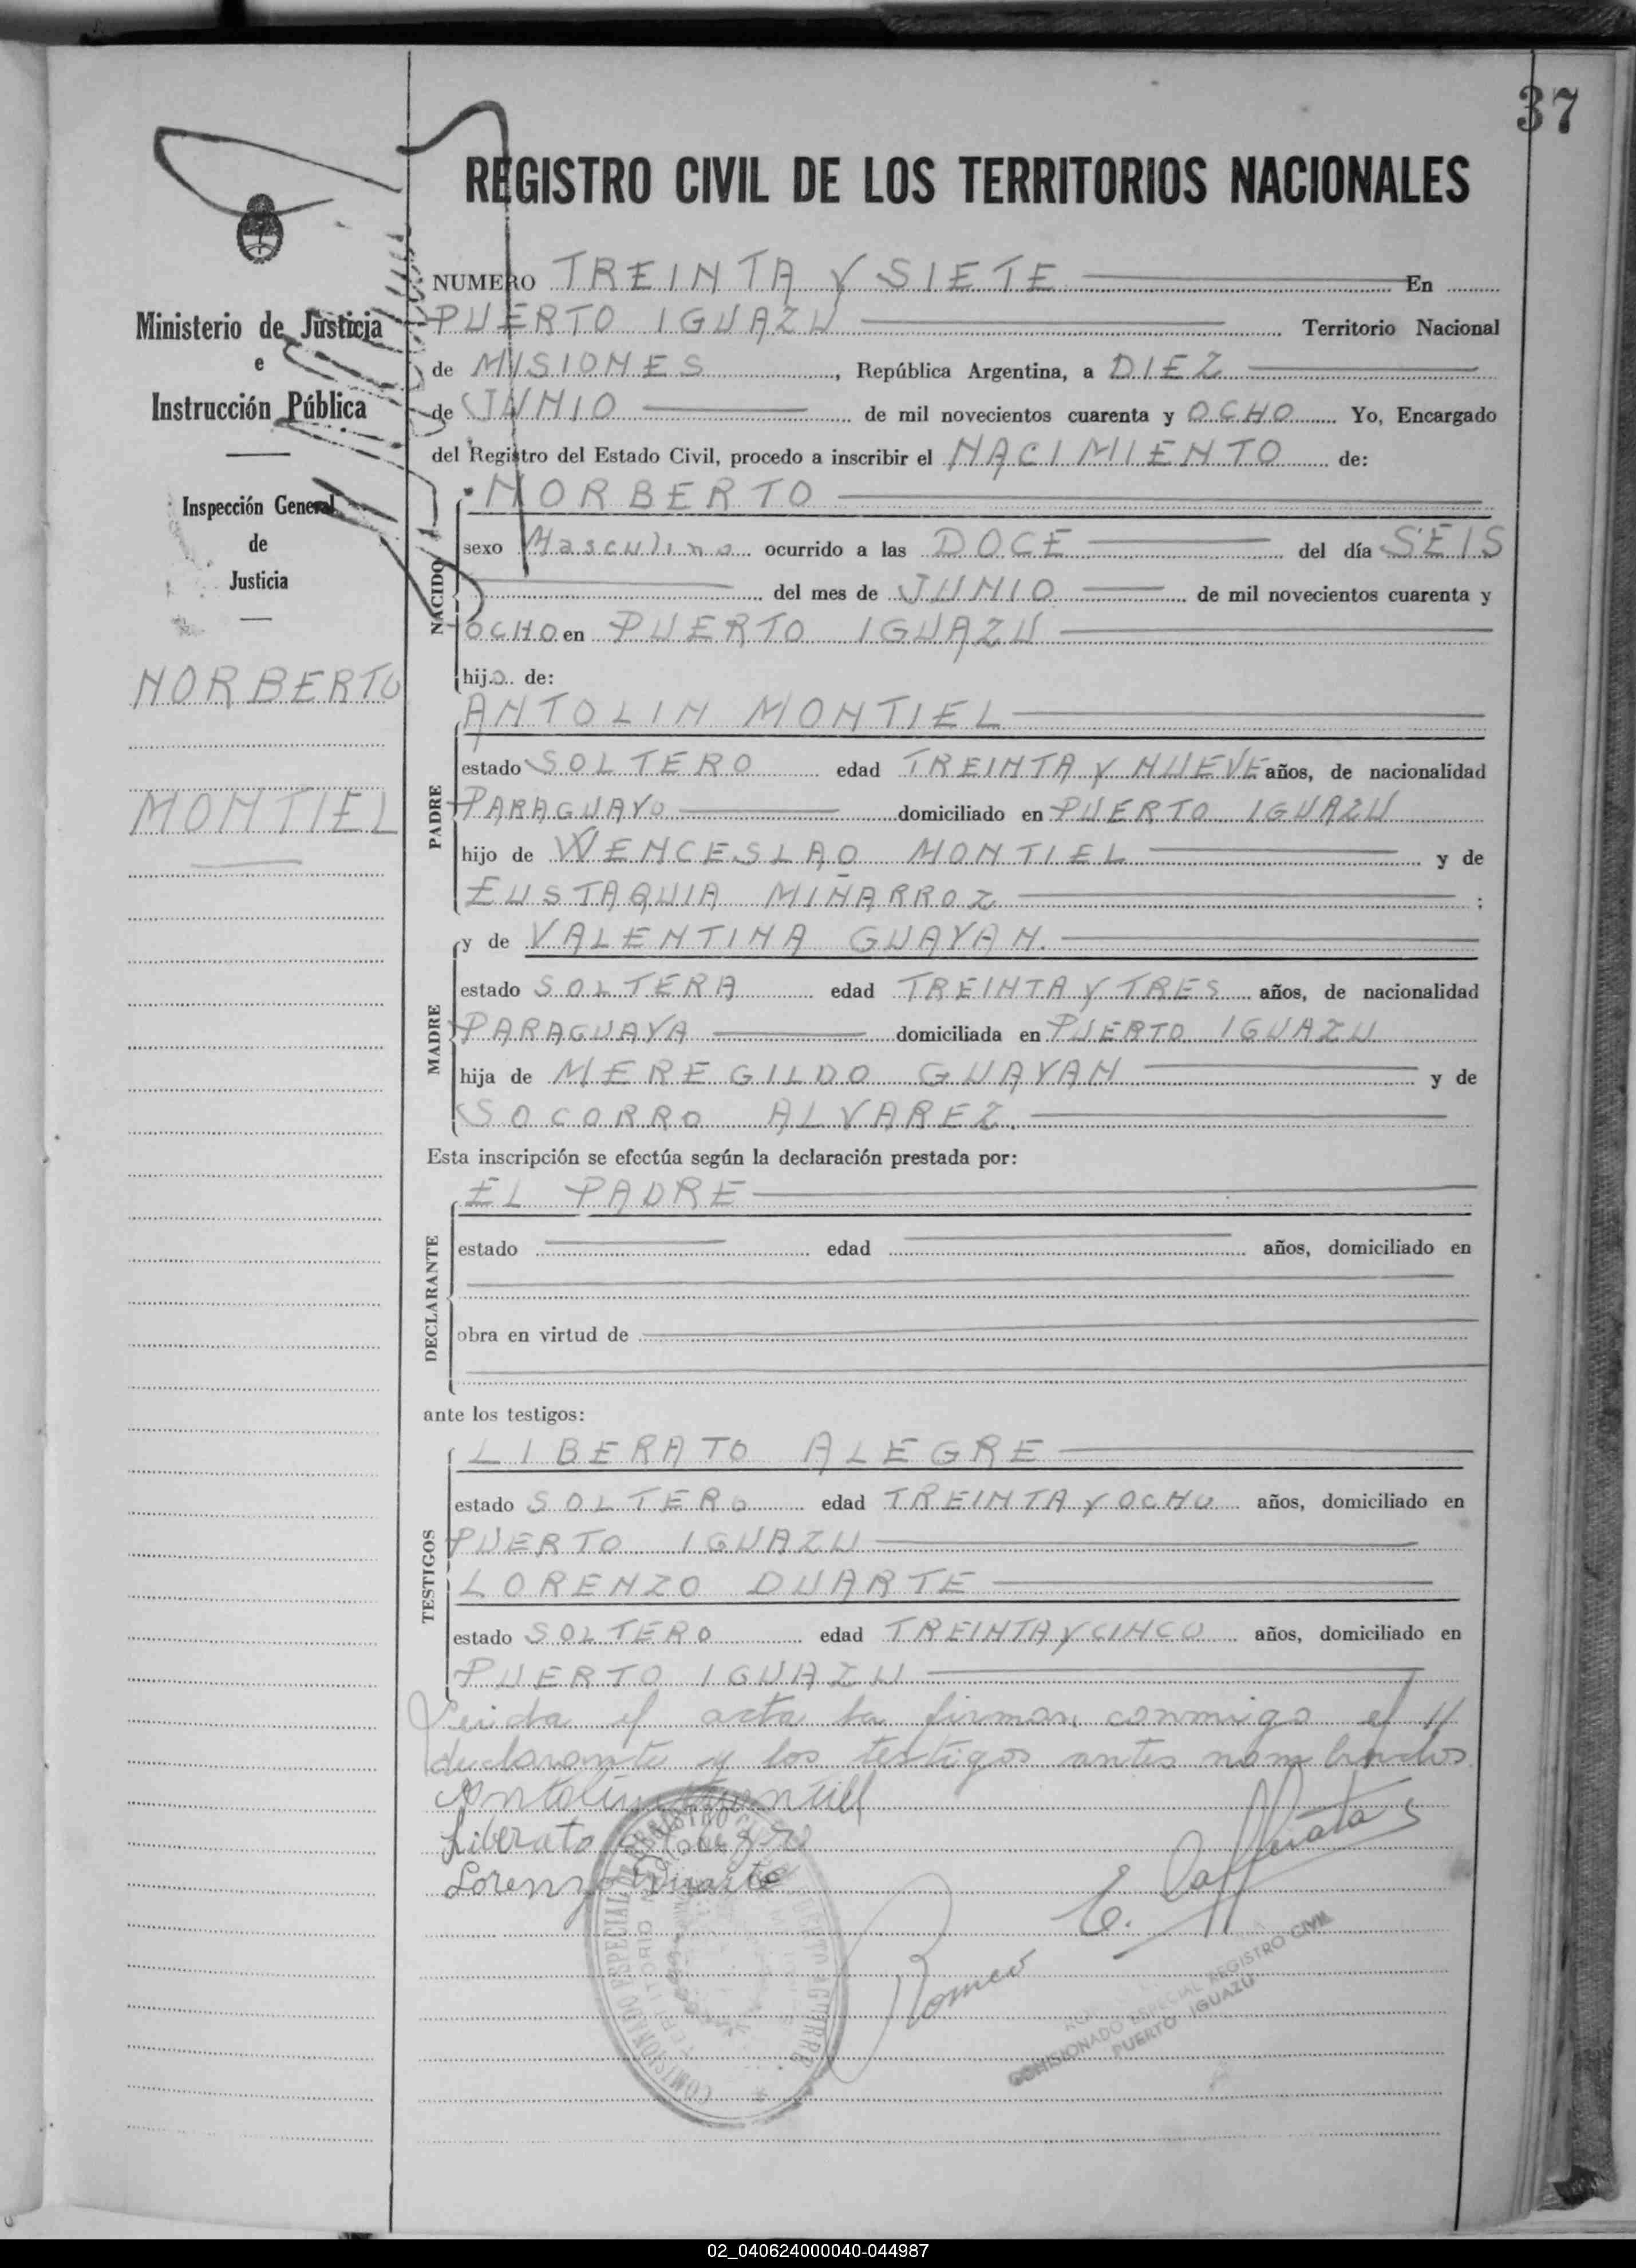 37
REGISTRO CIVIL DE LOS TERRITORIOS NACIONALES
Ministerio de Justicia
e
Instrucción Pública
Inspección General
de
Justicia
NORBERTO
MONTIEL
NUMERO TREINTA Y SIETE En
PUERTO IGUAZU Territorio Nacional
de MISIONES, República Argentina, a DIEZ
de JUNIO de mil novecientos cuarenta y OCHO Yo, Encargado
del Registro del Estado Civil, procedo a inscribir el NACIMIENTO de:
NORBERTO
NACIDO
sexo Masculino ocurrido a las DOCE del día SEIS
del mes de JUNIO de mil novecientos cuarenta y
OCHO en PUERTO IGUAZU
hijo de:
ANTOLIN MONTIEL
PADRE
estado SOLTERO edad TREINTA Y NUEVE años, de nacionalidad
PARAGUAYO domiciliado en PUERTO IGUAZU
hijo de WENCESLAO MONTIEL y de
EUSTAQUIA MIÑARROZ ;
y de VALENTINA GUAYAN.
MADRE
estado SOLTERA edad TREINTA Y TRES años, de nacionalidad
PARAGUAYA domiciliada en PUERTO IGUAZU
hija de MEREGILDO GUAYAN y de
SOCORRO ALVAREZ.
Esta inscripción se efectúa según la declaración prestada por:
EL PADRE
DECLARANTE
estado edad años, domiciliado en
obra en virtud de
ante los testigos:
LIBERATO ALEGRE
TESTIGOS
estado SOLTERO edad TREINTA Y OCHO años, domiciliado en
PUERTO IGUAZU
LORENZO DUARTE
estado SOLTERO edad TREINTA Y CINCO años, domiciliado en
PUERTO IGUAZU
Leida el acta la firman conmigo el
declarante y los testigos antes nombrados
Antolin Montiel
Liberato Alegre
Lorenzo Duarte
Romeo E.
COMISIONADO ESPECIAL REGISTRO CIVIL
PUERTO IGUAZU
COMISIONADO ESPECIAL
02_040624000040-044987